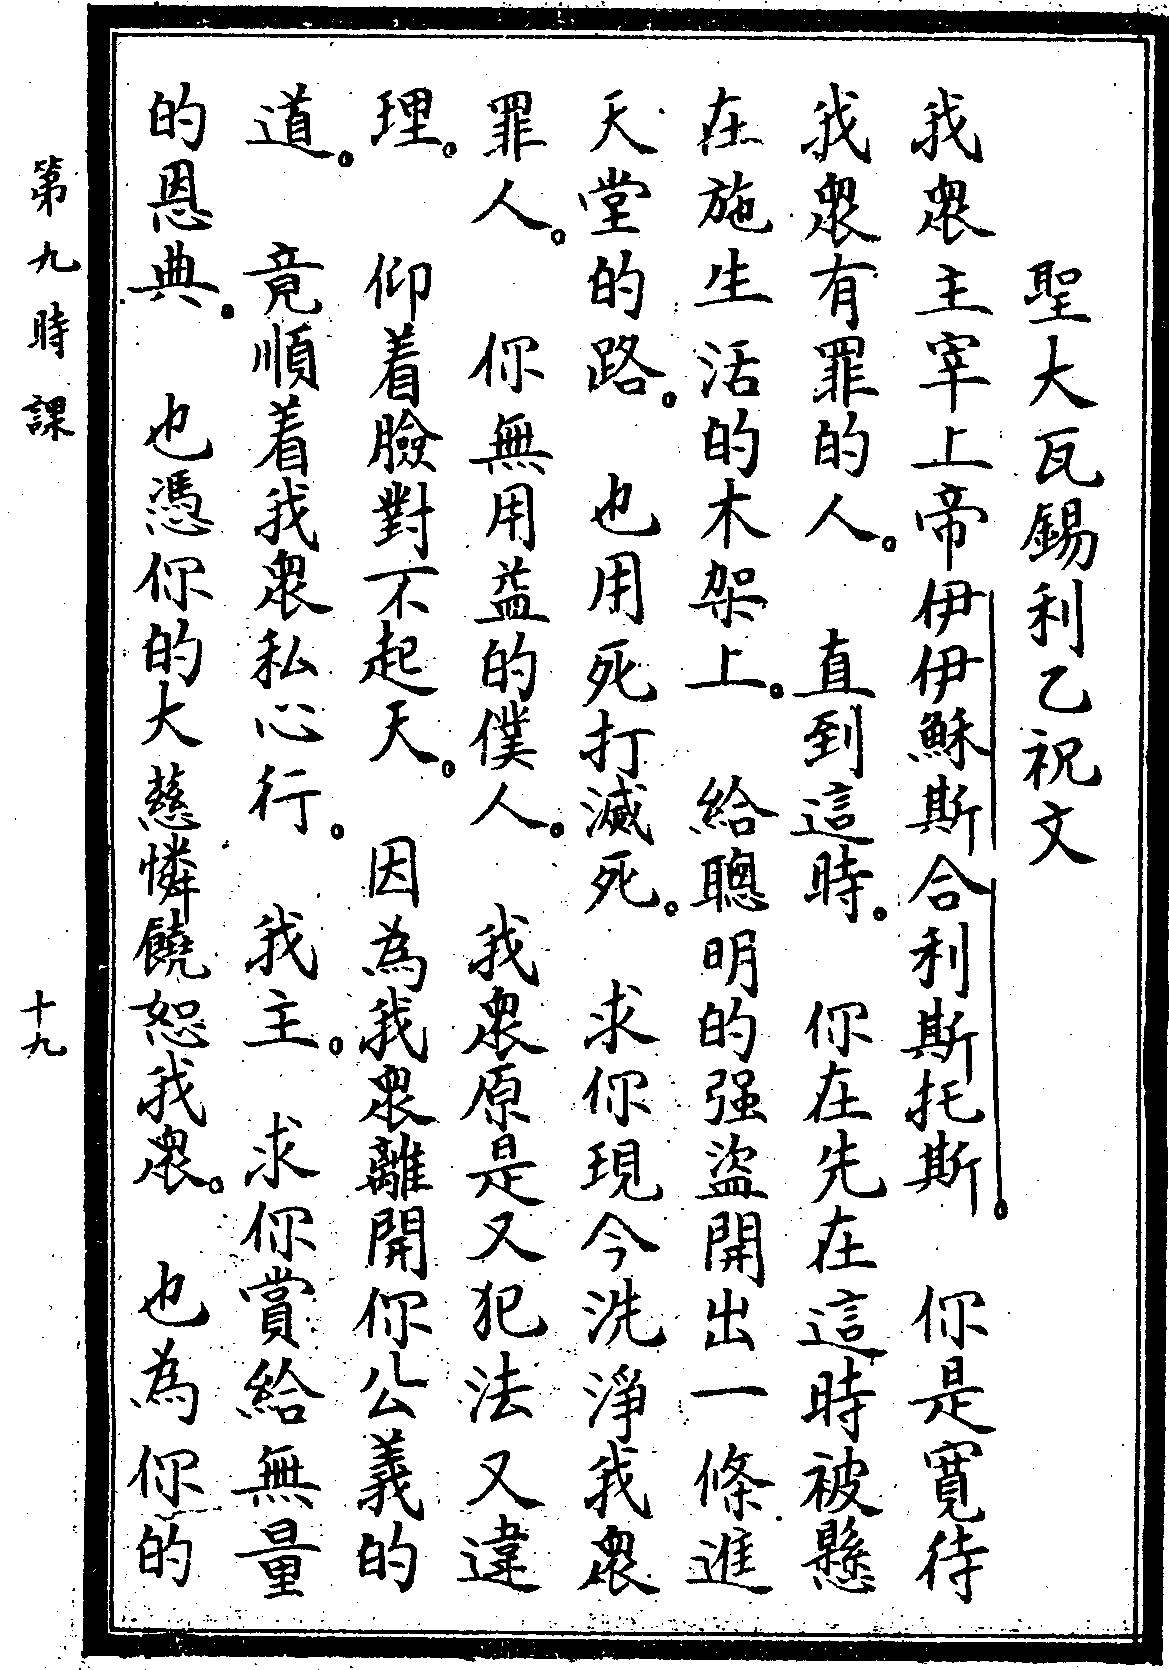 聖大瓦錫利乙祝文
我衆主宰上帝伊伊穌斯合利斯托斯。 你是寬待
我衆有罪的人。 直到這時。 你在先在這時被懸
在施生活的木架上。 給聰明的强盜開出一條進
天堂的路。 也用死打滅死。 求你現今洗淨我衆
罪人。 你無用益的僕人。 我衆原是又犯法又違
理。 仰着臉對不起天。 因為我衆離開你公義的
道。 竟順着我衆私心行。 我主。 求你賞給無量
的恩典。 也憑你的大慈憐饒恕我衆。 也為你的
第九時課
十九